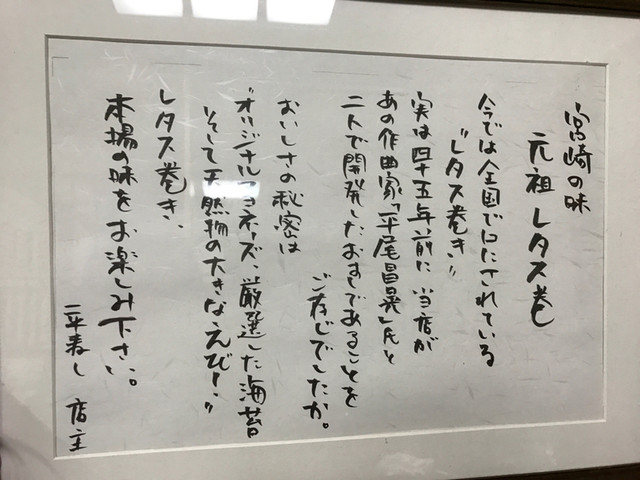 宮崎の味
元祖レタス巻
今では全国で口にされている
"レタス巻き"
実は四十五年前に当店が
あの作曲家「平尾昌晃」氏と
二人で開発したおすしであることを
ご存じでしたか。
おいしさの秘密は
"オリジナルマヨネーズ、厳選した海苔
そして天然物の大きなえび!"
レタス巻き、
本場の味をお楽しみ下さい。
一平寿し 店主